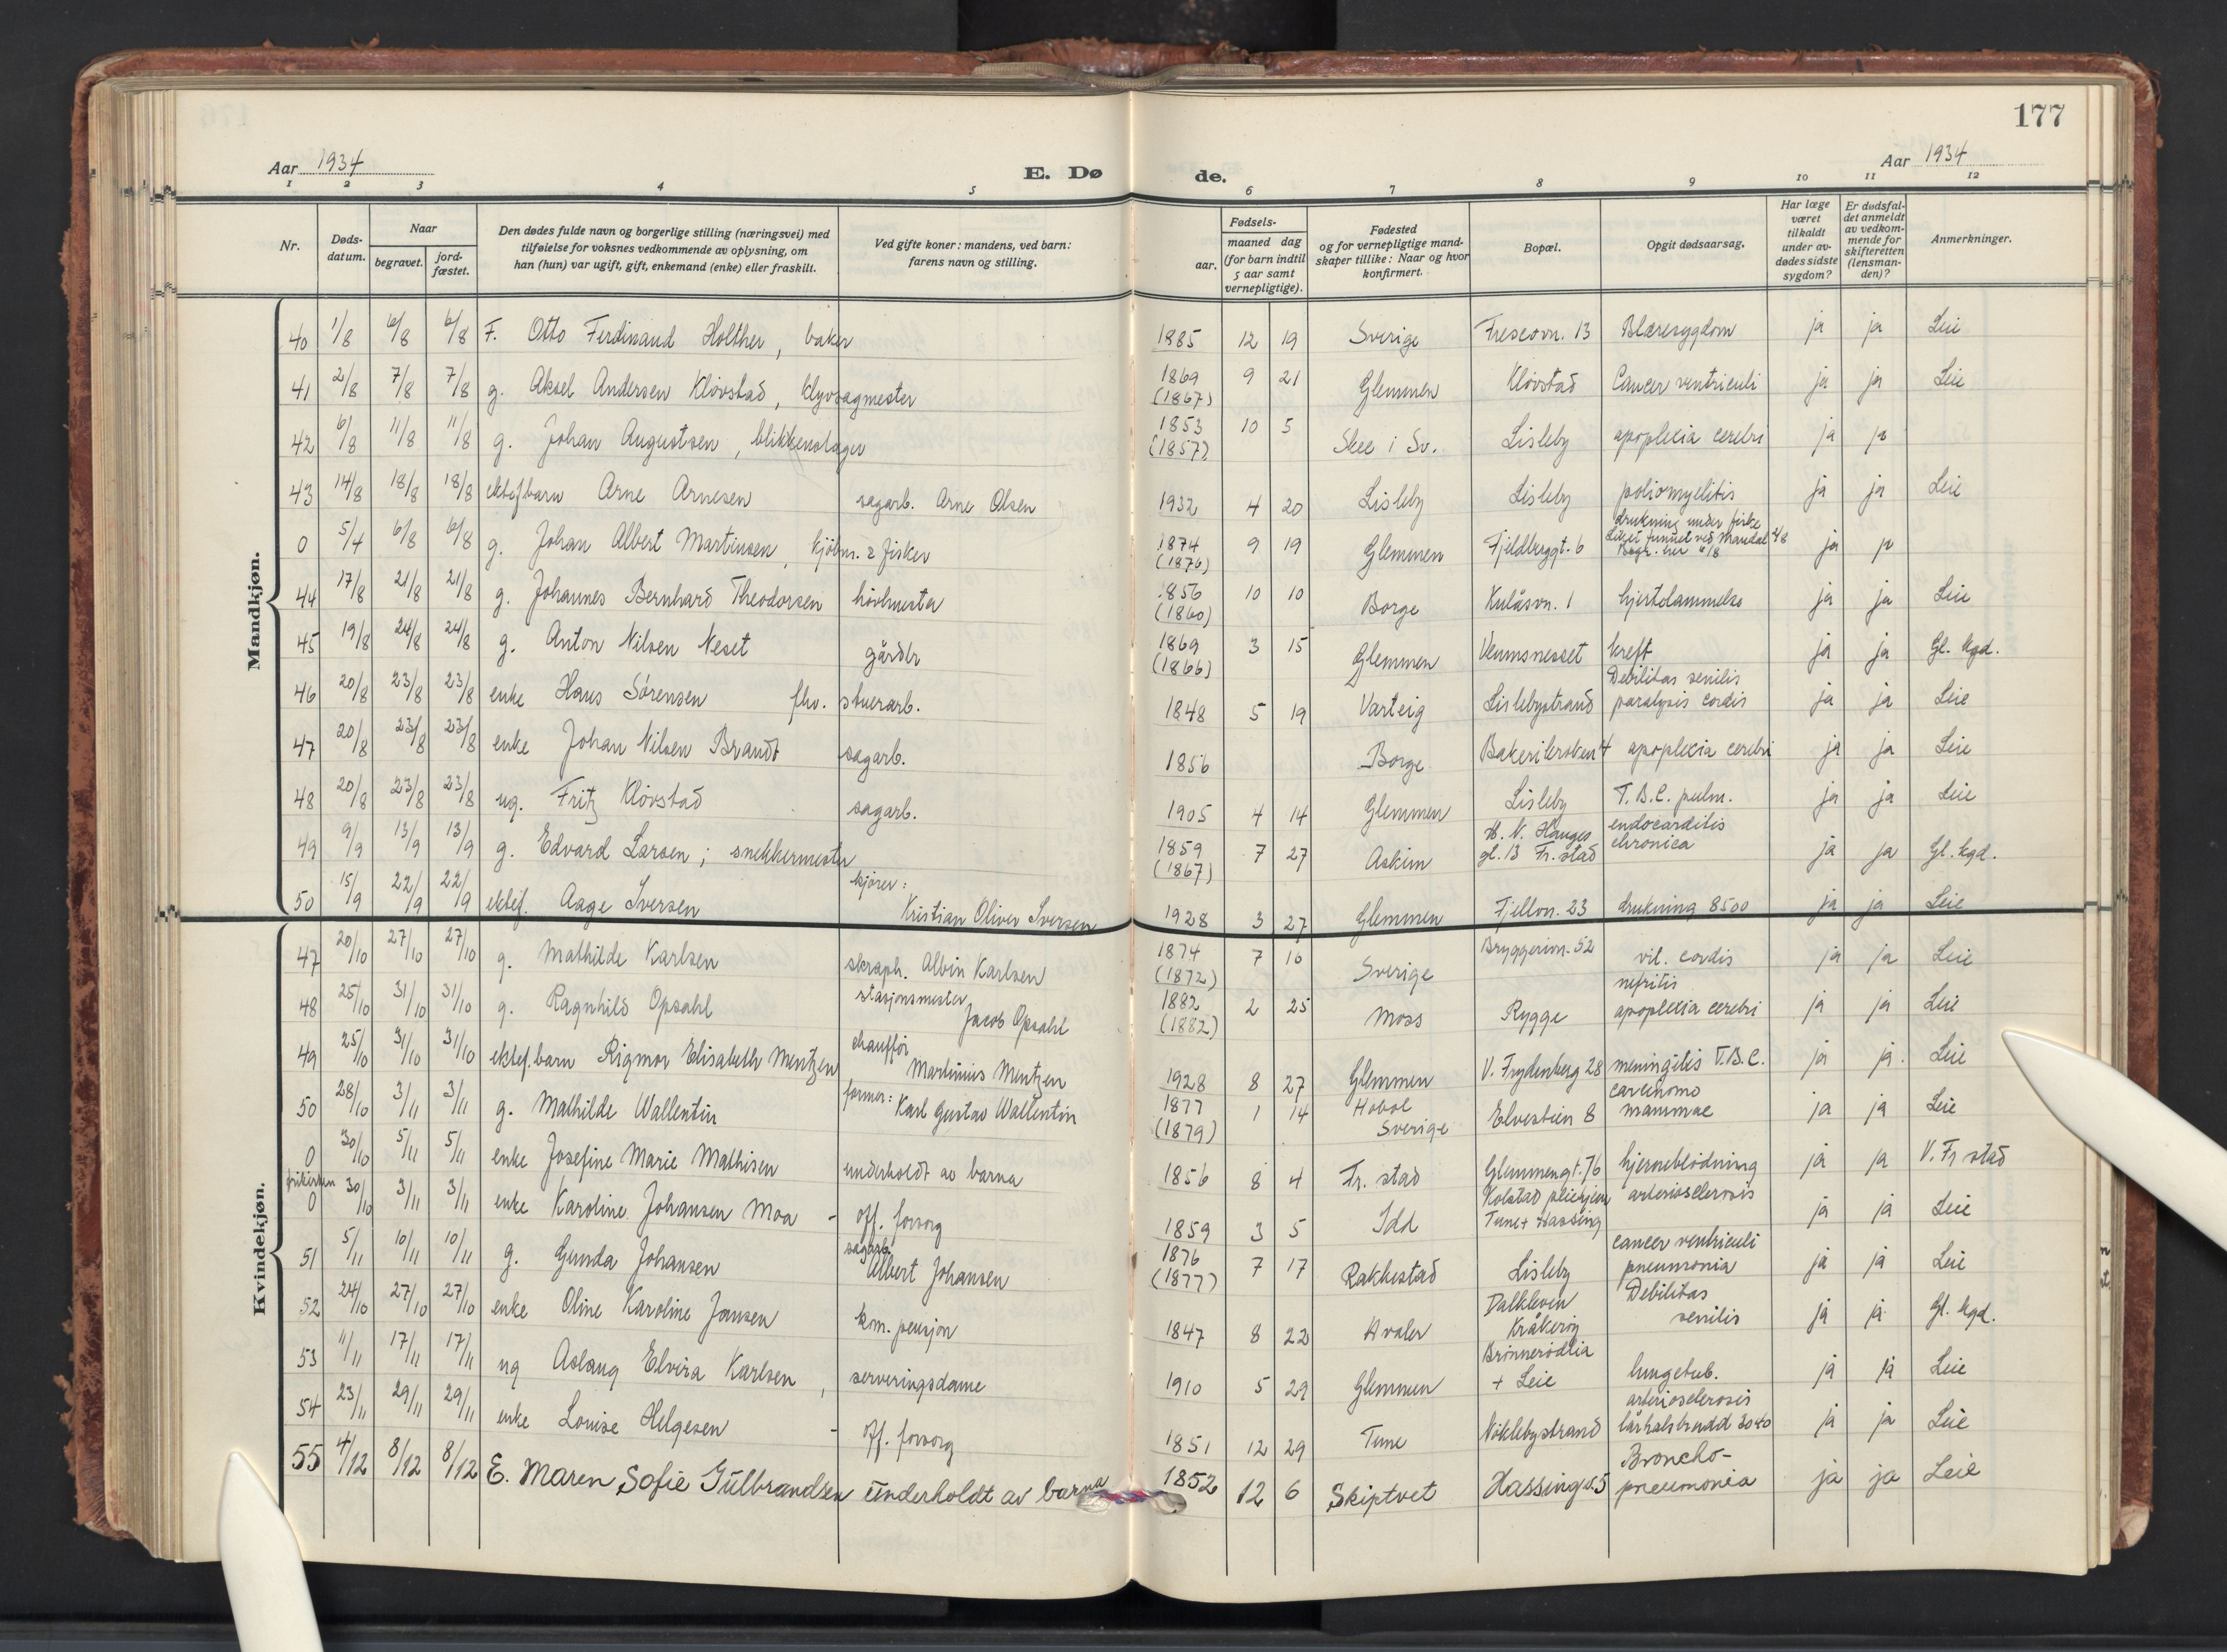 177
Aar 1934
E. Dø de.
Aar 1934
1 2 3 4 5 6 7 8 9 10 11 12
Nr.
Døds-datum.
Naar
begravet.
jord-fæstet.
Den dødes fulde navn og borgerlige stilling (næringsvei) med
tilføielse for voksnes vedkommende av oplysning, om
han (hun) var ugift, gift, enkemand (enke) eller fraskilt.
Ved gifte koner: mandens, ved barn:
farens navn og stilling.
Fødsels-
aar.
maaned dag
(for barn indtil
5 aar samt
vernepligtige).
Fødested
og for vernepligtige mand-
skaper tillike: Naar og hvor
konfirmert.
Bopæl.
Opgit dødsaarsag.
Har læge
været
tilkaldt
under av-
dødes sidste
sygdom?
Er dødsfal-
det anmeldt
av vedkom-
mende for
skifteretten
(lensman-
den)?
Anmerkninger.
Mandkjøn.
40 1/8 6/8 6/8 F. Otto Ferdinand Holther, baker 1885 12 19 Sverige 13 Blæresygdom ja ja Leie
41 2/8 7/8 7/8 g. Aksel Andersen Kløvstad, klyvsagmester 1869 (1867) 9 21 Glemmen Kløvstad Cancer ventriculi ja ja Leie
42 6/8 11/8 11/8 g. Johan Augustsen, blikkenslager 1853 (1857) 10 5 Skee i Sv. Lisleby apoplexia cerebri ja ja
43 14/8 18/8 18/8 ektef barn Arne Arnesen sagarb. Arne Olsen 1932 4 20 Lisleby Lisleby poliomyelitis ja ja Leie
0 5/4 6/8 6/8 g. Johan Albert Martinsen, kjøbm. & fisker 1874 (1876) 9 19 Glemmen Fjeldbergt. 6 drukning under fiske Liket funnet ved Mandal 2/8 Begr. her 6/8 ja ja
44 17/8 21/8 21/8 g. Johannes Bernhard Theodorsen høvlmester 1856 (1860) 10 10 Borge Kulåsvn. 1 hjertelammelse ja ja Leie
45 19/8 24/8 24/8 g. Anton Nilsen Neset gårdbr 1869 (1866) 3 15 Glemmen Veumsnesset kreft ja ja Gl. kgd.
46 20/8 23/8 23/8 enke Hans Sørensen fhv. stuerarb. 1848 5 19 Varteig Lislebystrand Debilitas senilis paralysis cordis ja ja Leie
47 20/8 23/8 23/8 enke Johan Nilsen Brandt sagarb. 1856 Borge Bakerikroken 4 apoplexia cerebri ja ja Leie
48 20/8 23/8 23/8 ug. Fritz Kløvstad sagarb. 1905 4 14 Glemmen Lisleby T.B.C. pulm. ja ja Leie
49 9/9 13/9 13/9 g. Edvard Larsen; snekkermester 1859 (1867) 7 27 Askim H. N. Hauges gt. 13 Fr.stad endocarditis chronica ja ja Gl. kgd.
50 15/9 22/9 22/9 ektef. Aage Iversen kjører: Kristian Oliver Iversen 1928 3 27 Glemmen Fjellvn. 23 drukning 8500 ja ja Leie
Kvindekjøn.
47 20/10 27/10 27/10 g. Mathilde Karlsen skraph. Albin Karlsen 1874 (1872) 7 16 Sverige Bryggerivn. 52 vit. cordis ja ja Leie
48 25/10 31/10 31/10 g. Ragnhild Opsahl stasjonsmester Jacob Opsahl 1882 (1882) 2 25 Moss Rygge nefritis apoplexia cerebri ja ja Leie
49 25/10 31/10 31/10 ektef. barn Rigmor Elisabeth Mentzen chauffør Martinius Mentzen 1928 8 27 Glemmen V. Frydenberg 28 meningitis T.B.C. ja ja. Leie
50 28/10 3/11 3/11 g. Mathilde Wallentin former: Karl Gustav Wallentin 1877 (1879) 1 14 Hobøl Sverige Elvestien 8 carcinomo mammae ja ja Leie
0 30/10 5/11 5/11 enke Josefine Marie Mathisen underholdt av barna 1856 8 4 Fr. stad Glemmengt. 76 hjerneblødning ja ja V. Fr stad
frikirken
0 30/10 3/11 3/11 enke Karoline Johansen Moa - off. forsorg 1859 3 5 Idd Kolstad pleiehjem Tune + Hassing arteriosclerosis ja ja Leie
51 5/11 10/11 10/11 g. Gunda Johansen sagarb. Albert Johansen 1876 (1877) 7 17 Rakkestad Lisleby cancer ventriculi pneumonia ja ja Leie
52 24/10 27/10 27/10 enke Oline Karoline Jansen kom. pensjon 1847 8 22 Hvaler Dalkleven Kråkerøy Debilitas senilis ja ja Gl. kgd.
53 11/11 17/11 17/11 ug Aslaug Elvira Karlsen, serveringsdame 1910 5 29 Glemmen Brønnerødlia + Leie lungetub. ja ja Leie
54 23/11 29/11 29/11 enke Louise Helgesen - off. forsorg 1851 12 29 Tune Nøklebystrand arteriosclerosis lårhalsbrudd 3040 ja ja Leie
55 4/12 8/12 8/12 E. Maren Sofie Gulbrandsen underholdt av barna 1852 12 6 Skiptvet Hassingd. 5 Broncho-pneumonia ja ja Leie